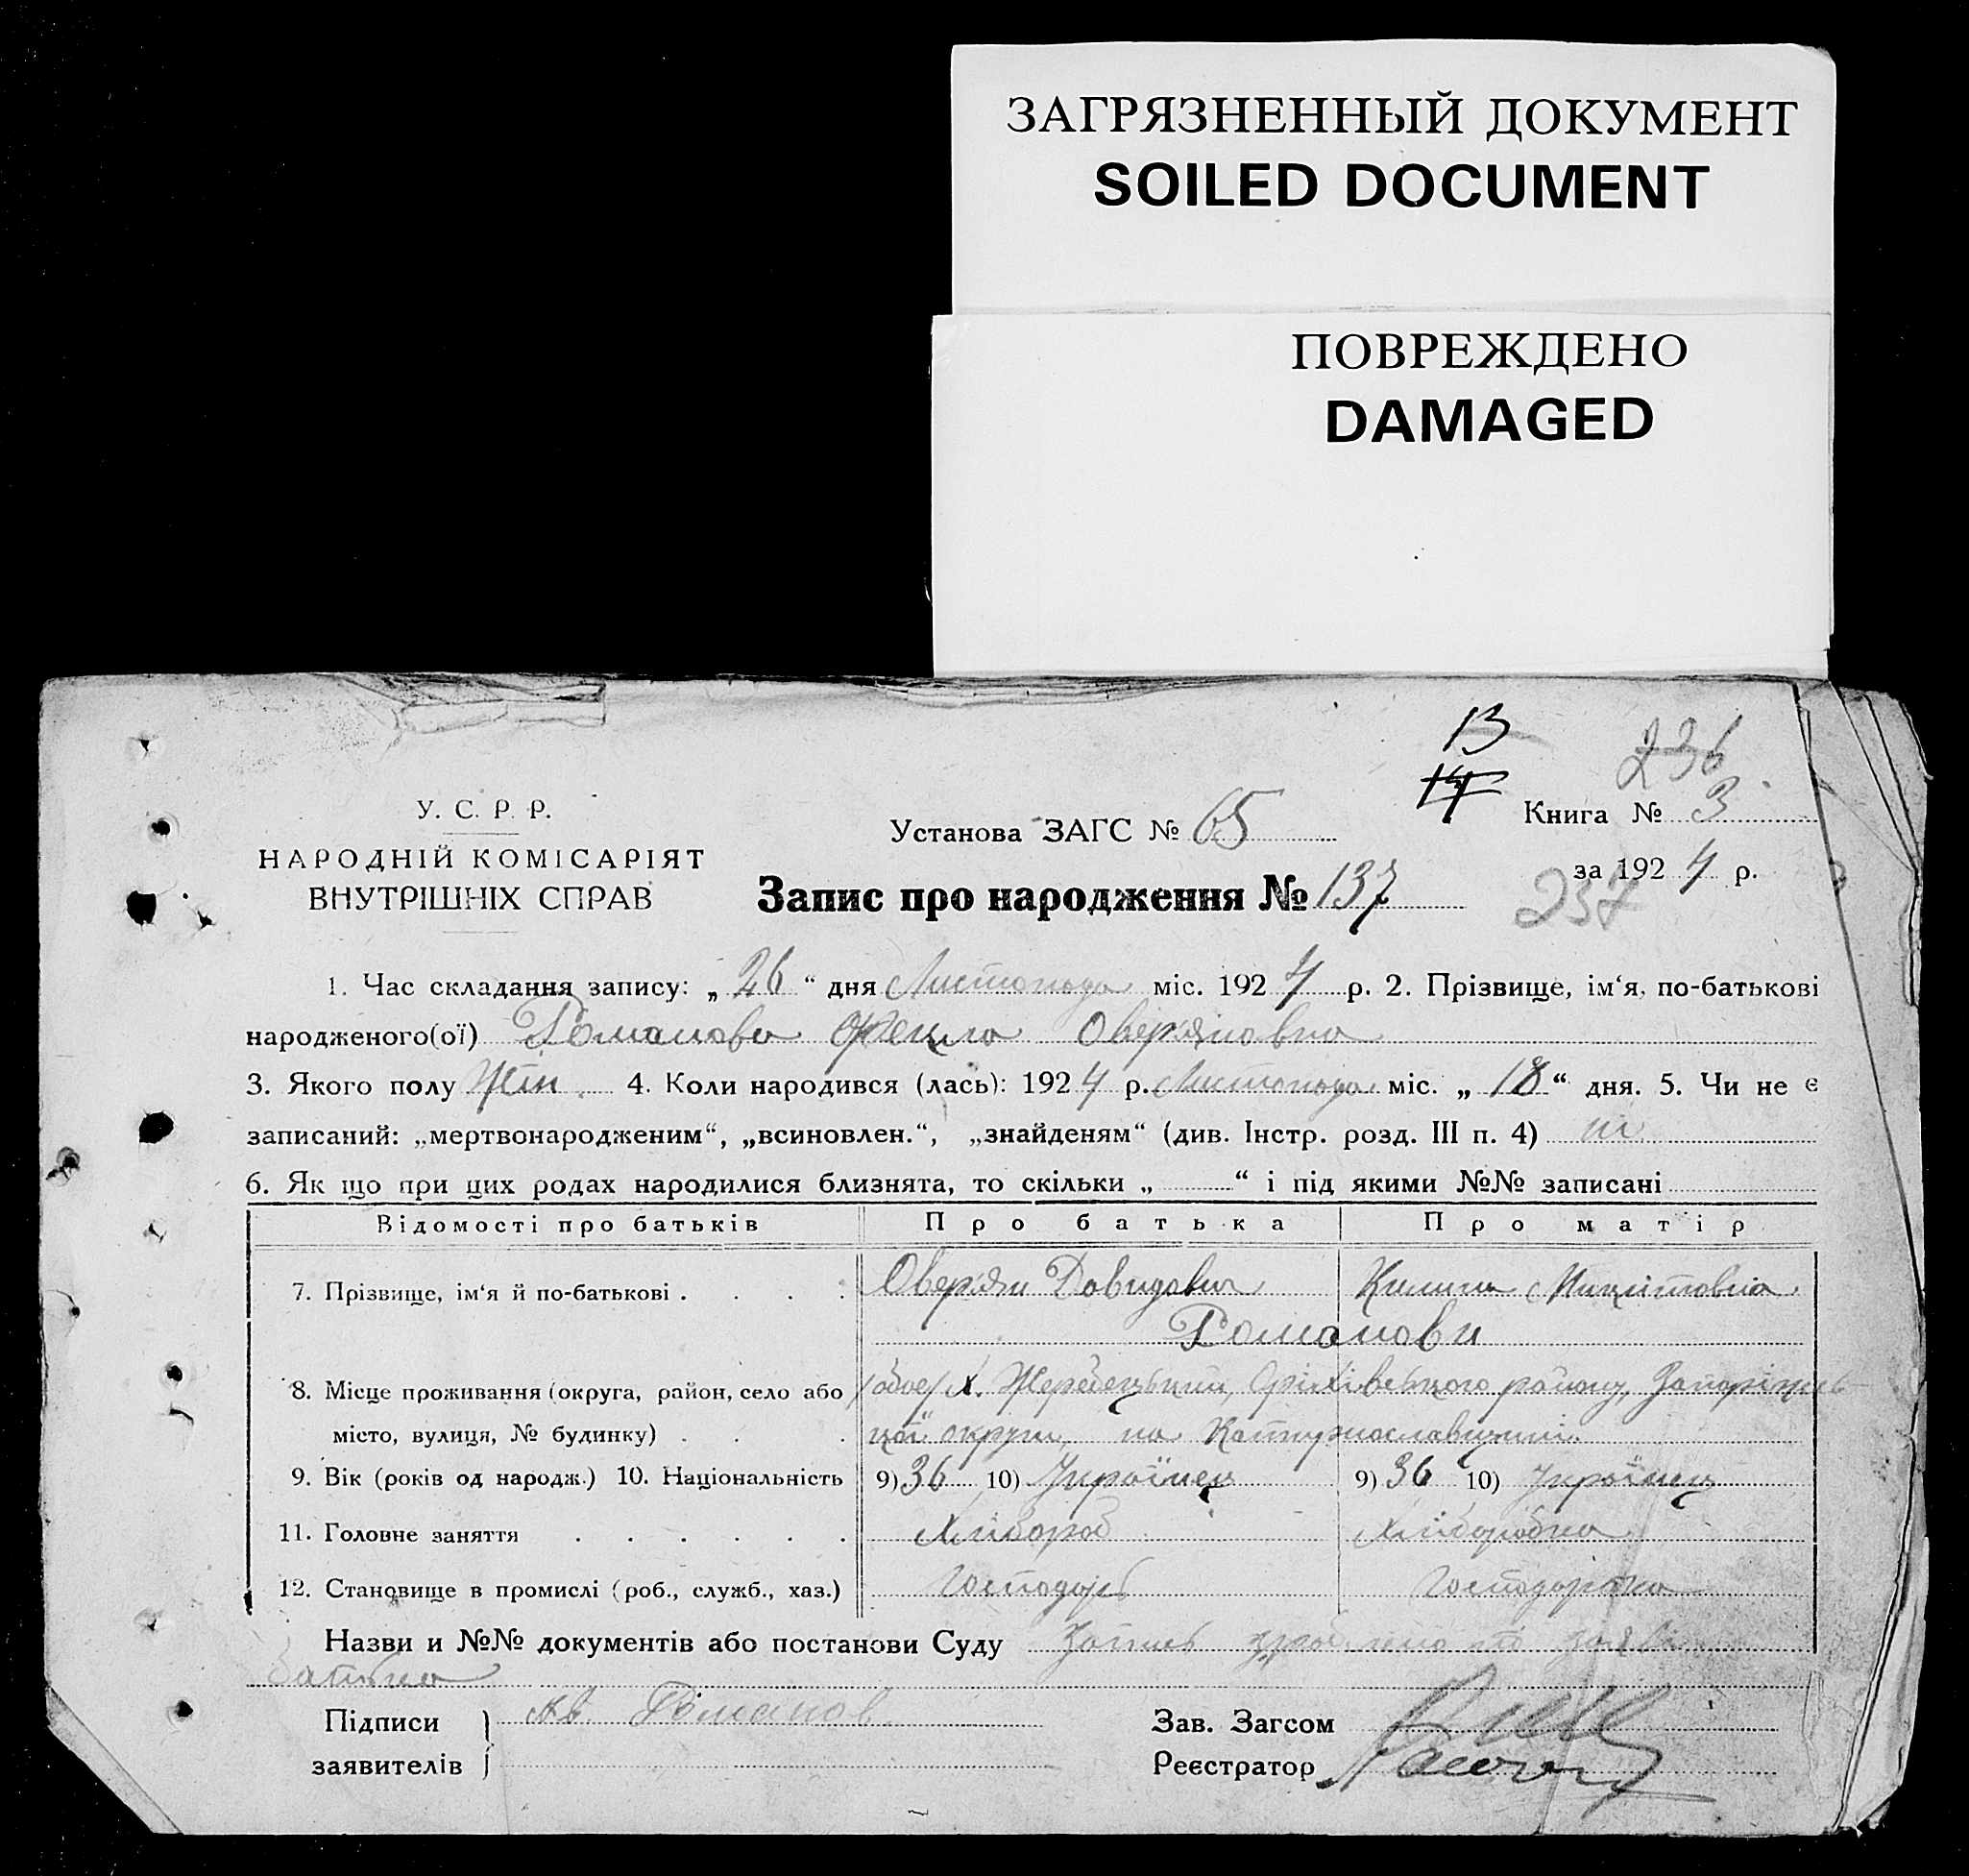 ЗАГРЯЗНЕННЫЙ ДОКУМЕНТ
SOILED DOCUMENT
ПОВРЕЖДЕНО
DAMAGED
13
14
236
У. С. Р. Р.
НАРОДНІЙ КОМІСАРІЯТ
ВНУТРІШНІХ СПРАВ
Установа ЗАГС № 65
Книга № 3
за 1924 р.
Запис про народження № 137
237
1. Час складання запису: „ 26 “ дня Листопада міс. 1924 р. 2. Прізвище, ім‘я, по-батькові
народженого(ої) Романова Фекла Оверʼяновна
3. Якого полу Жін. 4. Коли народився (лась): 1924 р. Листопада міс. „ 18 “ дня. 5. Чи не є
записаний: „мертвонародженим“, „всиновлен.“, „знайденям“ (див. Інстр. розд. III п. 4) ні
6. Як що при цих родах народилися близнята, то скільки „ “ і під якими №№ записані
Відомості про батьків Про батька Про матір
7. Прізвище, ім‘я й по-батькові . . . . Оверʼян Давидович Килина Микитовна
Романови
8. Місце проживання (округа, район, село або /обоє/ х. Жеребецький, Оріхівського району, Запорізь
місто, вулиця, № будинку) . . . цої округи, на Катеринославщині
9. Вік (років од народж.) 10. Національність 9) 36 10) Українец 9) 36 10) Українец
11. Головне заняття . . . . . . Хлібороб Хліборобка
12. Становище в промислі (роб., служб., хаз.) Господарь Господарка
Назви и №№ документів або постанови Суду Запись зроблено по заяві
батька
Підписи Ав. Романов
заявителів
Зав. Загсом
Реєстратор